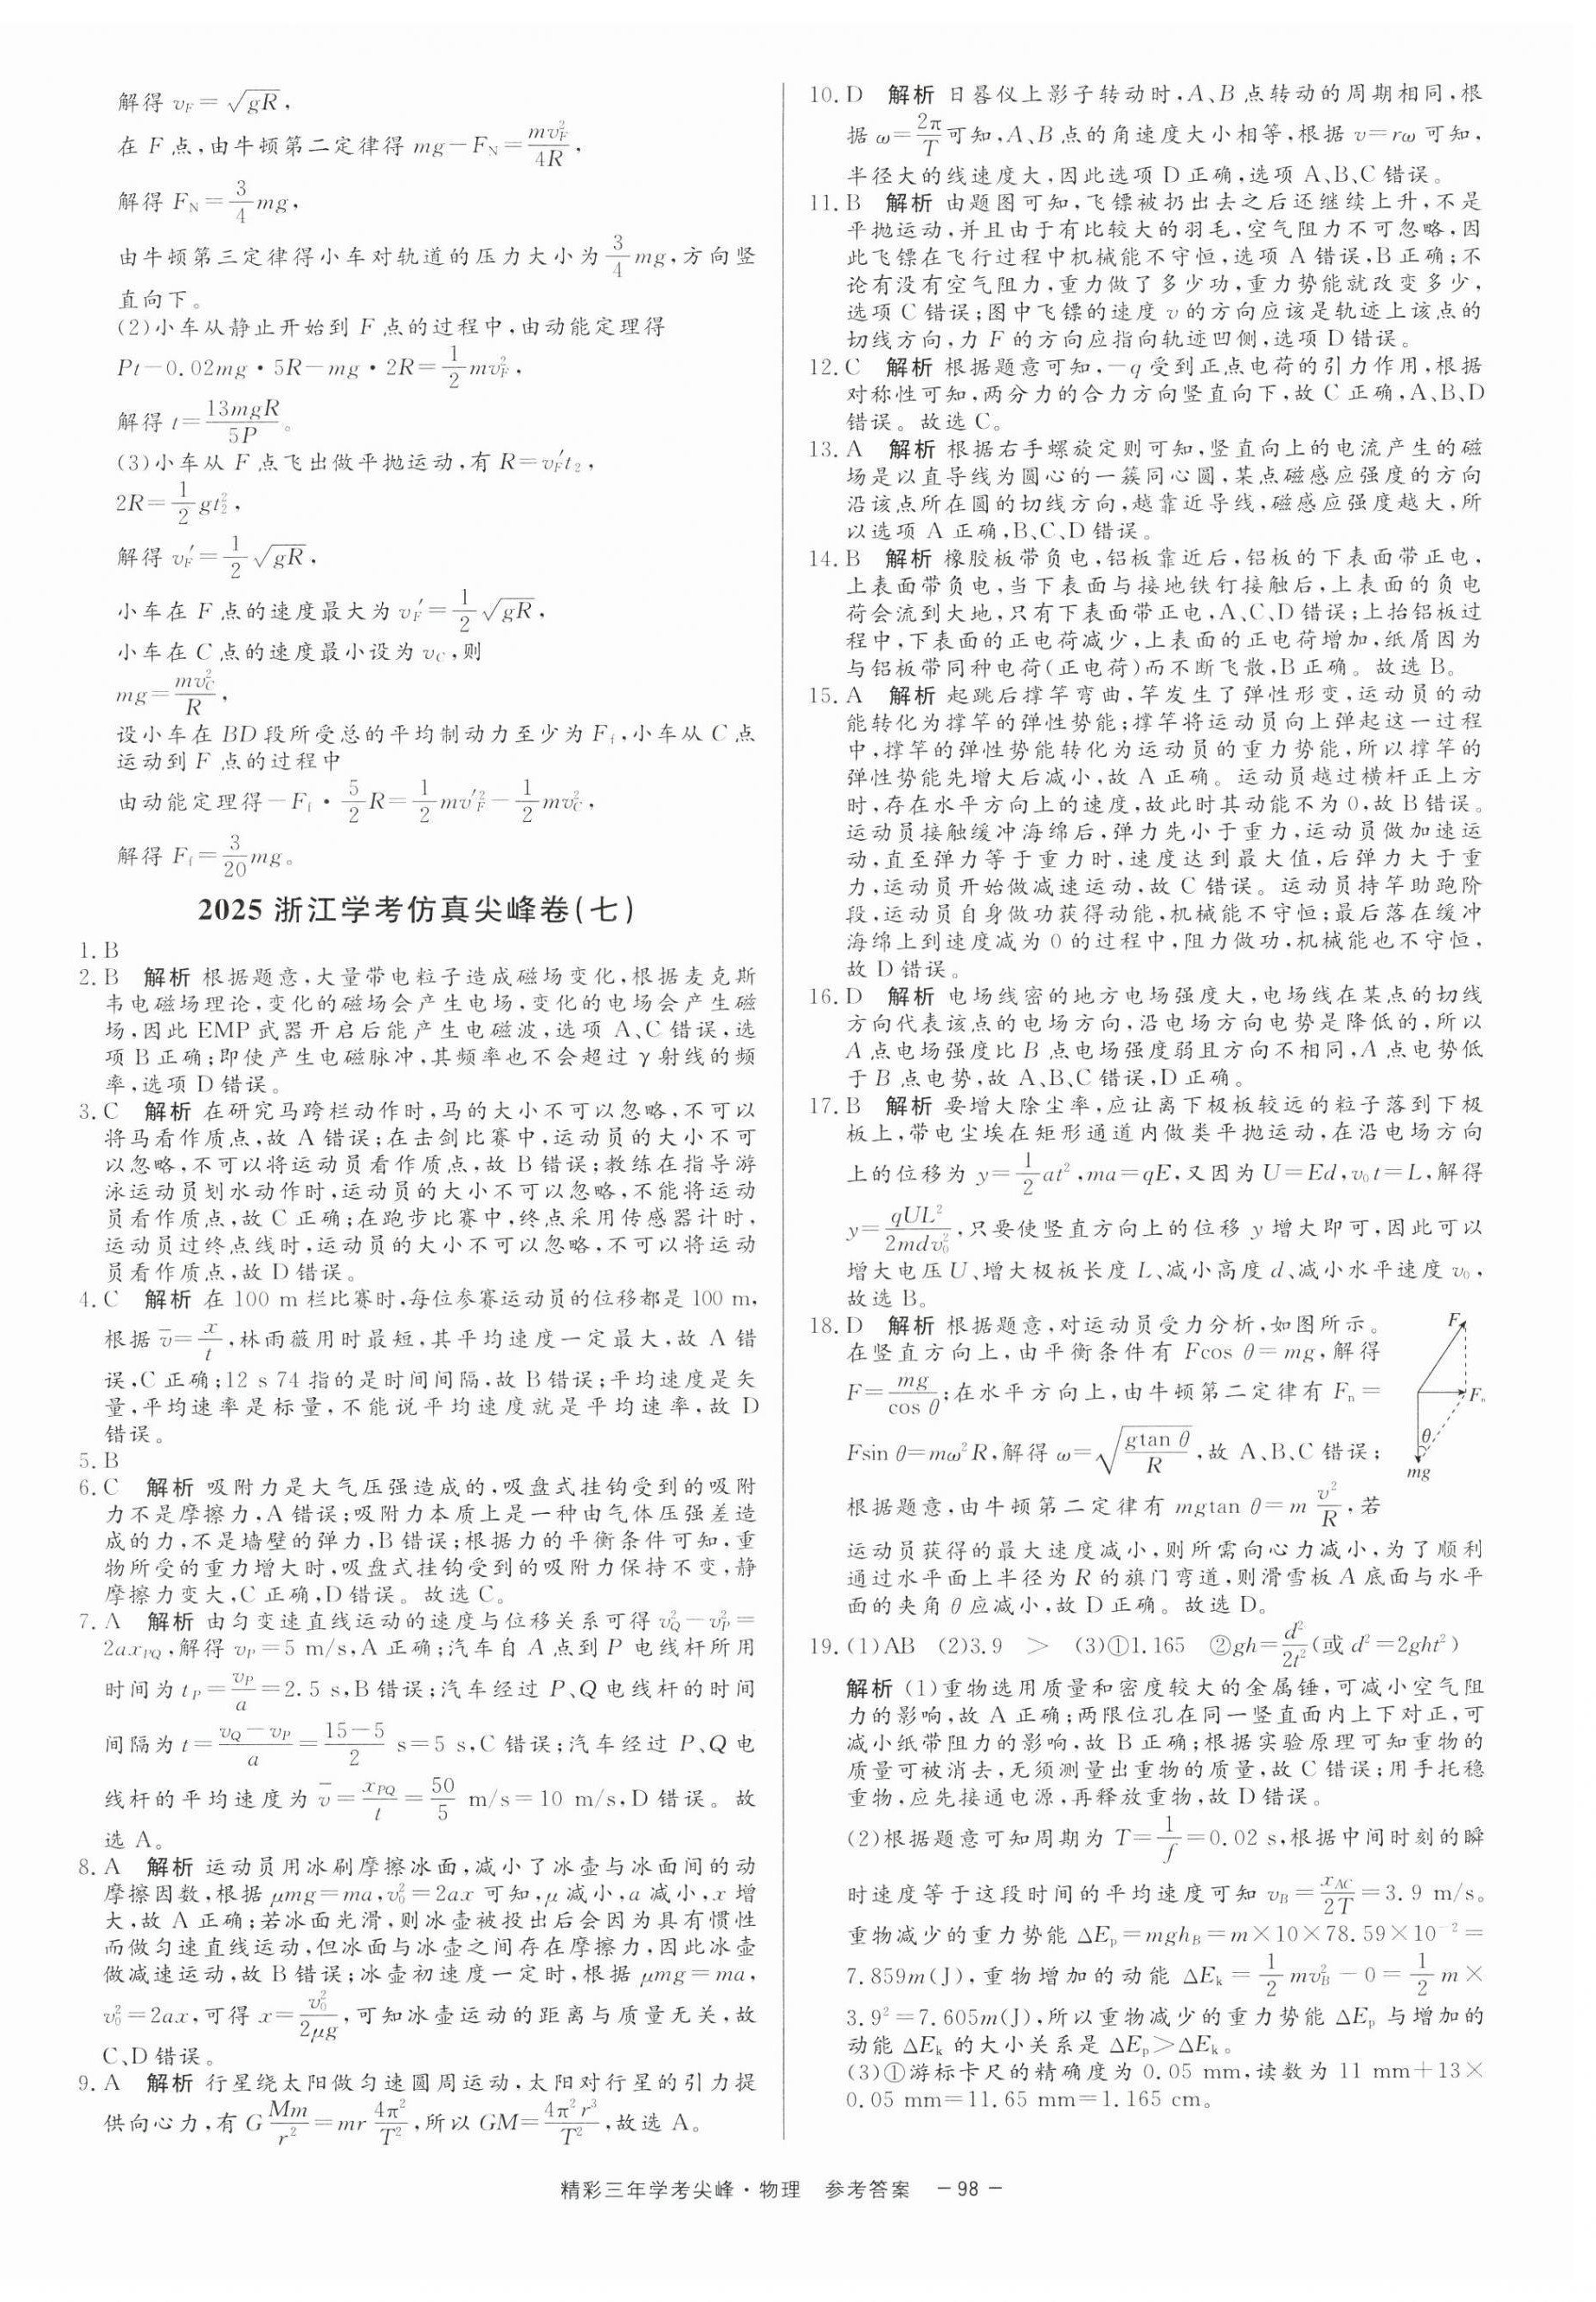 解得 v_F=√gR，
在 F 点，由牛顿第二定律得 mg−F_N=mv_F²/4R，
解得 F_N=3/4 mg，
由牛顿第三定律得小车对轨道的压力大小为 3/4 mg，方向竖
直向下。
(2)小车从静止开始到 F 点的过程中，由动能定理得
Pt−0.02mg·5R−mg·2R=1/2 mv_F²，
解得 t=13mgR/5P。
(3)小车从 F 点飞出做平抛运动，有 R=v_F′t₂，
2R=1/2 gt₂²，
解得 v_F′=1/2 √gR，
小车在 F 点的速度最大为 v_F′=1/2 √gR，
小车在 C 点的速度最小设为 v_C，则
mg=mv_C²/R，
设小车在 BD 段所受总的平均制动力至少为 F_f，小车从 C 点
运动到 F 点的过程中
由动能定理得−F_f·5/2 R=1/2 mv′_F²−1/2 mv_C²，
解得 F_f=3/20 mg。
2025 浙江学考仿真尖峰卷(七)
1. B
2. B 解析 根据题意，大量带电粒子造成磁场变化，根据麦克斯
韦电磁场理论，变化的磁场会产生电场，变化的电场会产生磁
场，因此 EMP 武器开启后能产生电磁波，选项 A、C 错误，选
项 B 正确；即使产生电磁脉冲，其频率也不会超过 γ 射线的频
率，选项 D 错误。
3. C 解析 在研究马跨栏动作时，马的大小不可以忽略，不可以
将马看作质点，故 A 错误；在击剑比赛中，运动员的大小不可
以忽略，不可以将运动员看作质点，故 B 错误；教练在指导游
泳运动员划水动作时，运动员的大小不可以忽略，不能将运动
员看作质点，故 C 正确；在跑步比赛中，终点采用传感器计时，
运动员过终点线时，运动员的大小不可以忽略，不可以将运动
员看作质点，故 D 错误。
4. C 解析 在 100 m 栏比赛时，每位参赛运动员的位移都是 100 m，
根据 v̄=x/t，林雨薇用时最短，其平均速度一定最大，故 A 错
误，C 正确；12 s 74 指的是时间间隔，故 B 错误；平均速度是矢
量，平均速率是标量，不能说平均速度就是平均速率，故 D
错误。
5. B
6. C 解析 吸附力是大气压强造成的，吸盘式挂钩受到的吸附
力不是摩擦力，A 错误；吸附力本质上是一种由气体压强差造
成的力，不是墙壁的弹力，B 错误；根据力的平衡条件可知，重
物所受的重力增大时，吸盘式挂钩受到的吸附力保持不变，静
摩擦力变大，C 正确，D 错误。故选 C。
7. A 解析 由匀变速直线运动的速度与位移关系可得 v_Q²−v_P²=
2ax_PQ，解得 v_P=5 m/s，A 正确；汽车自 A 点到 P 电线杆所用
时间为 t_P=v_P/a=2.5 s，B 错误；汽车经过 P、Q 电线杆的时间
间隔为 t=(v_Q−v_P)/a=(15−5)/2 s=5 s，C 错误；汽车经过 P、Q 电
线杆的平均速度为 v̄=x_PQ/t=50/5 m/s=10 m/s，D 错误。故
选 A。
8. A 解析 运动员用冰刷摩擦冰面，减小了冰壶与冰面间的动
摩擦因数，根据 μmg=ma，v₀²=2ax 可知，μ 减小，a 减小，x 增
大，故 A 正确；若冰面光滑，则冰壶被投出后会因为具有惯性
而做匀速直线运动，但冰面与冰壶之间存在摩擦力，因此冰壶
做减速运动，故 B 错误；冰壶初速度一定时，根据 μmg=ma，
v₀²=2ax，可得 x=v₀²/2μg，可知冰壶运动的距离与质量无关，故
C、D 错误。
9. A 解析 行星绕太阳做匀速圆周运动，太阳对行星的引力提
供向心力，有 G Mm/r²=mr 4π²/T²，所以 GM=4π²r³/T²，故选 A。
10. D 解析 日晷仪上影子转动时，A、B 点转动的周期相同，根
据 ω=2π/T 可知，A、B 点的角速度大小相等，根据 v=rω 可知，
半径大的线速度大，因此选项 D 正确，选项 A、B、C 错误。
11. B 解析 由题图可知，飞镖被扔出去之后还继续上升，不是
平抛运动，并且由于有比较大的羽毛，空气阻力不可忽略，因
此飞镖在飞行过程中机械能不守恒，选项 A 错误，B 正确；不
论有没有空气阻力，重力做了多少功，重力势能就改变多少，
选项 C 错误；图中飞镖的速度 v 的方向应该是轨迹上该点的
切线方向，力 F 的方向应指向轨迹凹侧，选项 D 错误。
12. C 解析 根据题意可知，−q 受到正点电荷的引力作用，根据
对称性可知，两分力的合力方向竖直向下，故 C 正确，A、B、D
错误。故选 C。
13. A 解析 根据右手螺旋定则可知，竖直向上的电流产生的磁
场是以直导线为圆心的一簇同心圆，某点磁感应强度的方向
沿该点所在圆的切线方向，越靠近导线，磁感应强度越大，所
以选项 A 正确，B、C、D 错误。
14. B 解析 橡胶板带负电，铝板靠近后，铝板的下表面带正电，
上表面带负电，当下表面与接地铁钉接触后，上表面的负电
荷会流到大地，只有下表面带正电，A、C、D 错误；上抬铝板过
程中，下表面的正电荷减少，上表面的正电荷增加，纸屑因为
与铝板带同种电荷(正电荷)而不断飞散，B 正确。故选 B。
15. A 解析 起跳后撑竿弯曲，竿发生了弹性形变，运动员的动
能转化为撑竿的弹性势能；撑竿将运动员向上弹起这一过程
中，撑竿的弹性势能转化为运动员的重力势能，所以撑竿的
弹性势能先增大后减小，故 A 正确。运动员越过横杆正上方
时，存在水平方向上的速度，故此时其动能不为 0，故 B 错误。
运动员接触缓冲海绵后，弹力先小于重力，运动员做加速运
动，直至弹力等于重力时，速度达到最大值，后弹力大于重
力，运动员开始做减速运动，故 C 错误。运动员持竿助跑阶
段，运动员自身做功获得动能，机械能不守恒；最后落在缓冲
海绵上到速度减为 0 的过程中，阻力做功，机械能也不守恒，
故 D 错误。
16. D 解析 电场线密的地方电场强度大，电场线在某点的切线
方向代表该点的电场方向，沿电场方向电势是降低的，所以
A 点电场强度比 B 点电场强度弱且方向不相同，A 点电势低
于 B 点电势，故 A、B、C 错误，D 正确。
17. B 解析 要增大除尘率，应让离下极板较远的粒子落到下极
板上，带电尘埃在矩形通道内做类平抛运动，在沿电场方向
上的位移为 y=1/2 at²，ma=qE，又因为 U=Ed，v₀t=L，解得
y=qUL²/2mdv₀²，只要使竖直方向上的位移 y 增大即可，因此可以
增大电压 U、增大极板长度 L、减小高度 d、减小水平速度 v₀，
故选 B。
18. D 解析 根据题意，对运动员受力分析，如图所示。
在竖直方向上，由平衡条件有 Fcos θ=mg，解得
F=mg/cos θ；在水平方向上，由牛顿第二定律有 F_n=
Fsin θ=mω²R，解得 ω=√(gtan θ/R)，故 A、B、C 错误；
根据题意，由牛顿第二定律有 mgtan θ=m v²/R，若
F
F_n
θ
mg
运动员获得的最大速度减小，则所需向心力减小，为了顺利
通过水平面上半径为 R 的旗门弯道，则滑雪板 A 底面与水平
面的夹角 θ 应减小，故 D 正确。故选 D。
19. (1)AB (2)3.9 > (3)①1.165 ②gh=d²/2t²(或 d²=2ght²)
解析 (1)重物选用质量和密度较大的金属锤，可减小空气阻
力的影响，故 A 正确；两限位孔在同一竖直面内上下对正，可
减小纸带阻力的影响，故 B 正确；根据实验原理可知重物的
质量可被消去，无须测量出重物的质量，故 C 错误；用手托稳
重物，应先接通电源，再释放重物，故 D 错误。
(2)根据题意可知周期为 T=1/f=0.02 s，根据中间时刻的瞬
时速度等于这段时间的平均速度可知 v_B=x_AC/2T=3.9 m/s。
重物减少的重力势能 ΔE_p=mgh_B=m×10×78.59×10⁻²=
7.859m(J)，重物增加的动能 ΔE_k=1/2 mv_B²−0=1/2 m×
3.9²=7.605m(J)，所以重物减少的重力势能 ΔE_p 与增加的
动能 ΔE_k 的大小关系是 ΔE_p>ΔE_k。
(3)①游标卡尺的精确度为 0.05 mm，读数为 11 mm+13×
0.05 mm=11.65 mm=1.165 cm。
精彩三年学考尖峰·物理 参考答案 －98－